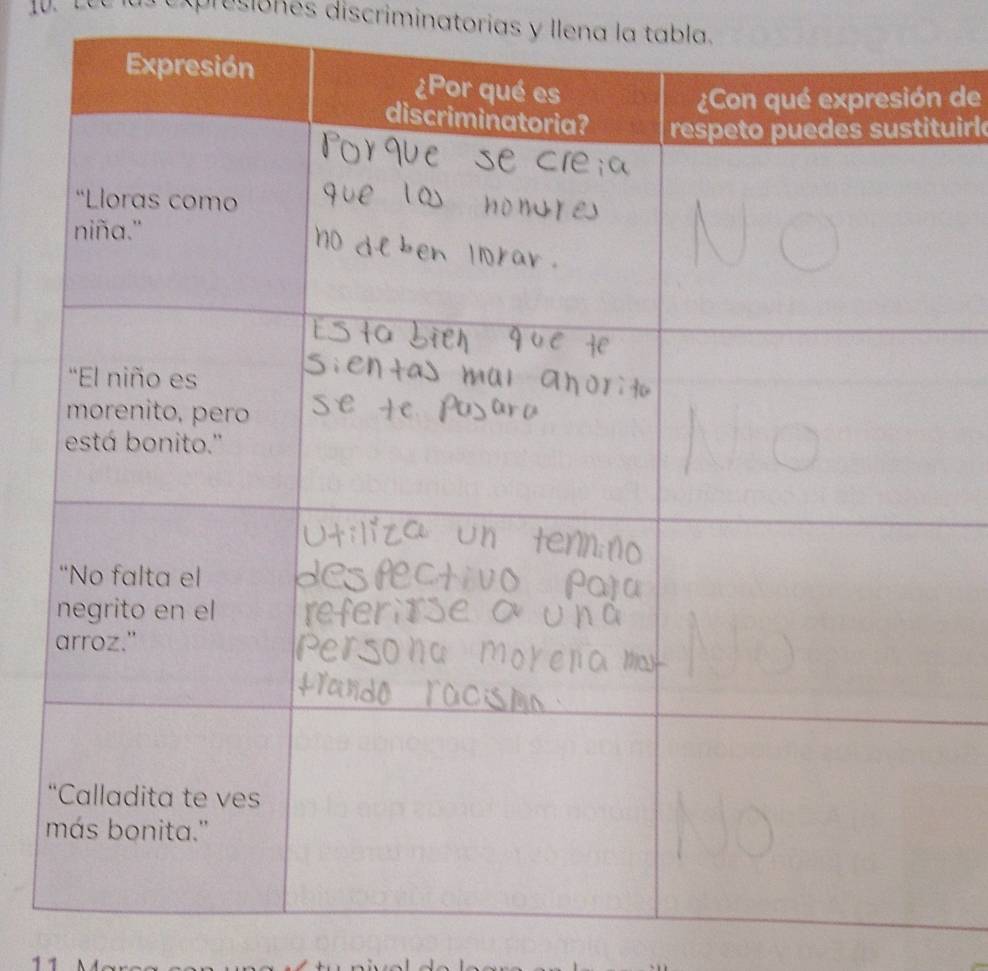 10. Lee las expresiones discriminatorias y llena la tabla.
Expresión
¿Por qué es
discriminatoria?
¿Con qué expresión de
respeto puedes sustituirl
"Lloras como
niña."
Porque se creia
que los homvres
no deben llorar.
NO
"El niño es
morenito, pero
está bonito."
Esta bien que te
sientas mal ahorito
se te pasara
NO
"No falta el
negrito en el
arroz."
Utiliza un termino
despectivo para
referirse a una
persona morena mos
trando racismo
NO
"Calladita te ves
más bonita."
NO
11